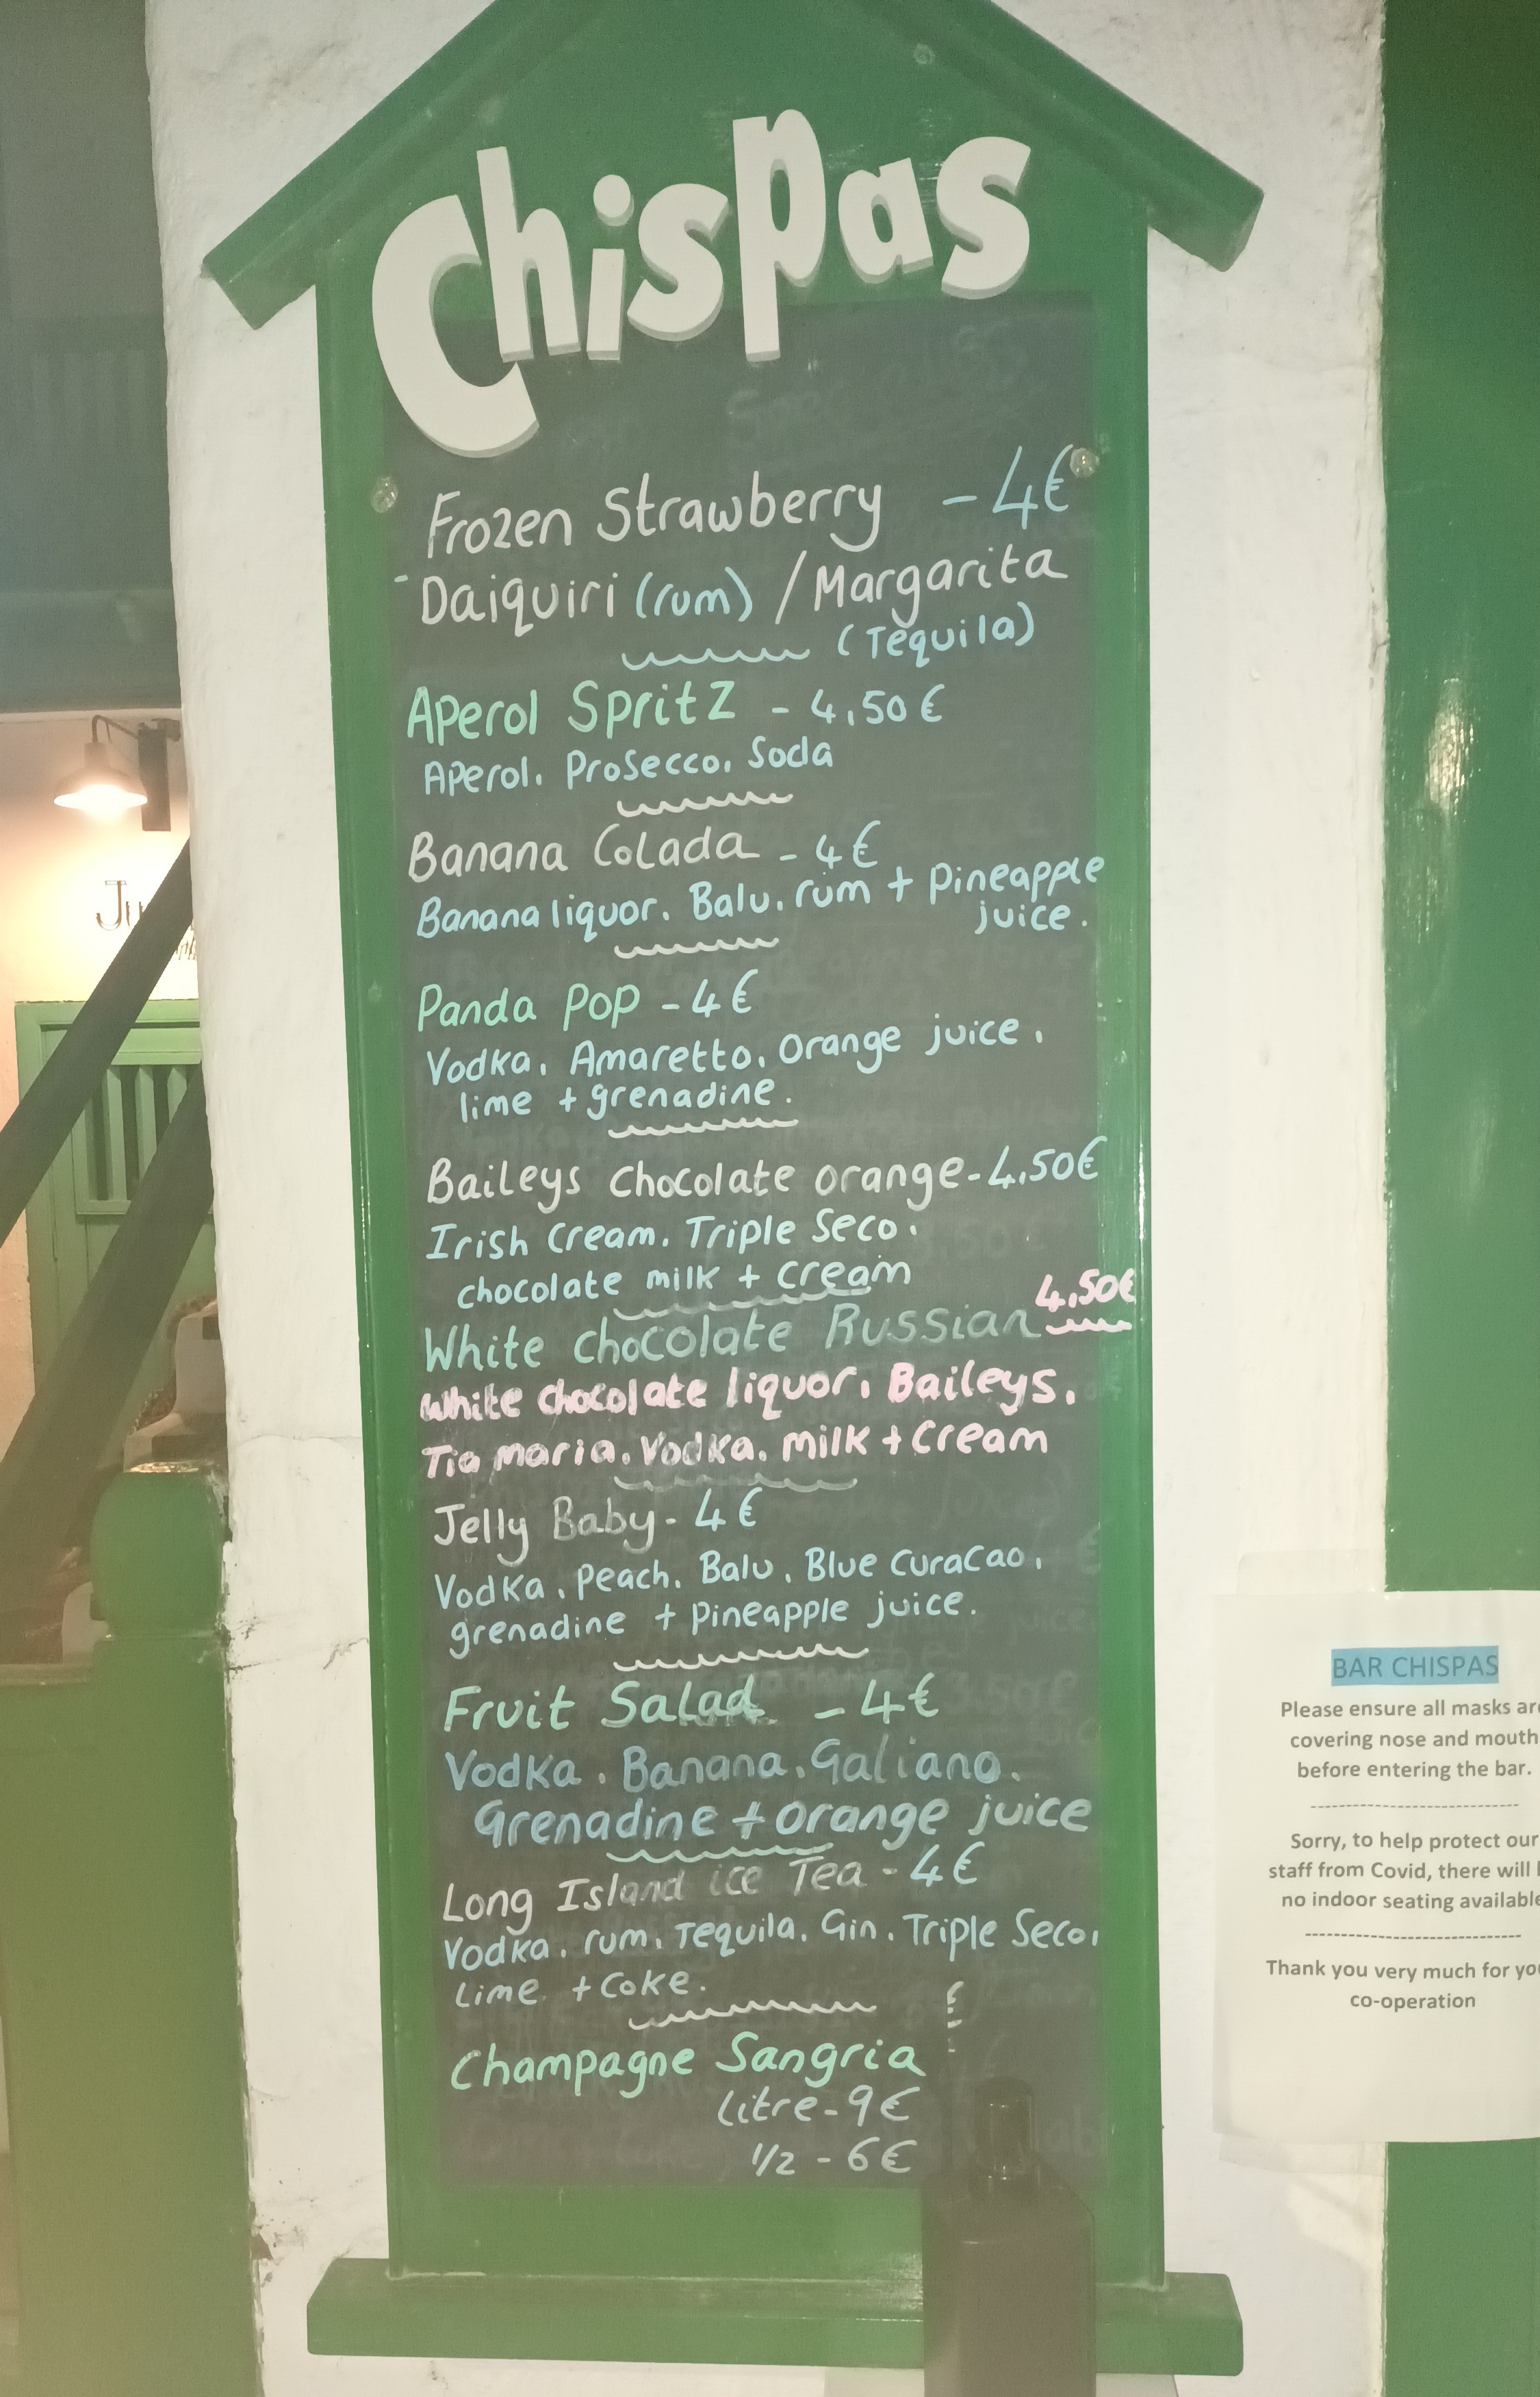 Chispas
Frozen Strawberry - 4€
- Daiquiri (rum) / Margarita
(Tequila)
Aperol Spritz - 4,50€
Aperol, Prosecco, Soda
Banana Colada - 4€
Banana liquor, Balu, rum + Pineapple
juice.
Panda Pop - 4€
Vodka, Amaretto, Orange juice,
lime + grenadine.
Baileys Chocolate orange - 4,50€
Irish Cream, Triple Seco,
chocolate milk + cream
4,50€
White chocolate Russian
White chocolate liquor, Baileys,
Tia maria, Vodka, milk + Cream
Jelly Baby - 4€
Vodka, Peach, Balu, Blue Curacao,
grenadine + Pineapple juice.
Fruit Salad - 4€
Vodka, Banana, Galiano,
Grenadine + orange juice
Long Island ice Tea - 4€
Vodka, rum, Tequila, Gin, Triple Seco,
Lime + Coke.
Champagne Sangria
Litre - 9€
1/2 - 6€
BAR CHISPAS
Please ensure all masks are
covering nose and mouth
before entering the bar.
Sorry, to help protect our
staff from Covid, there will
no indoor seating available
Thank you very much for
co-operation